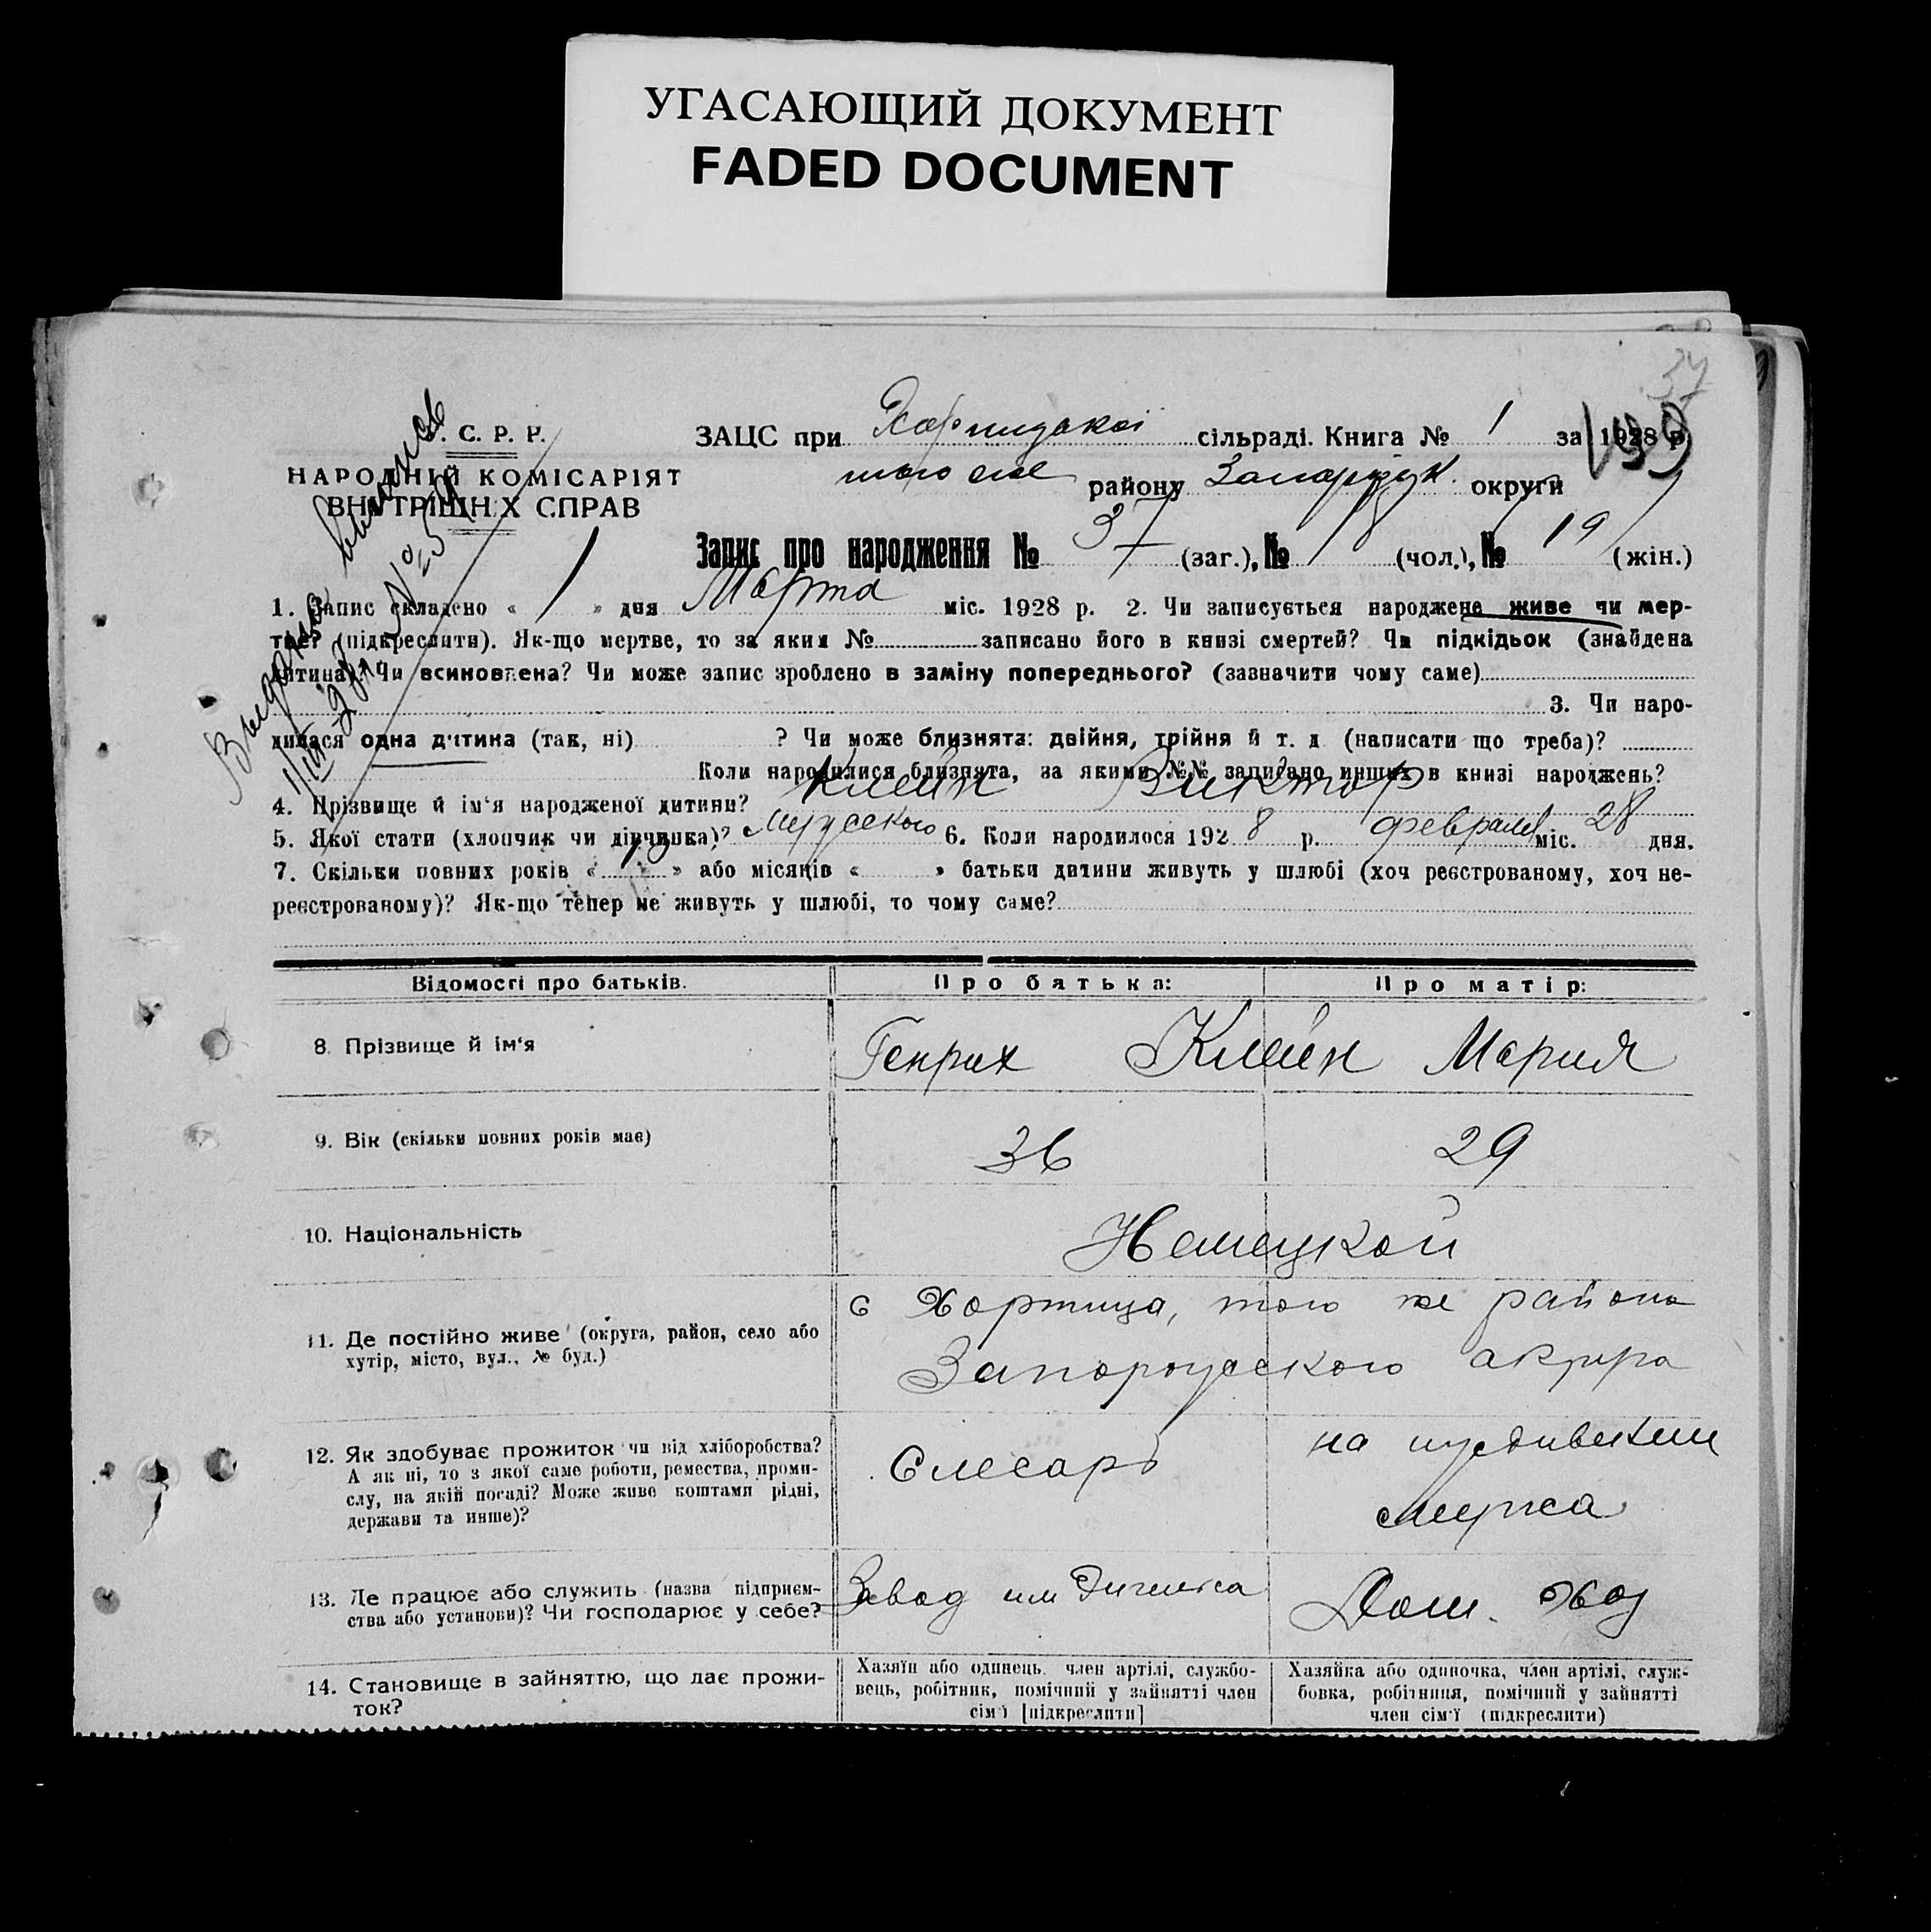 УГАСАЮЩИЙ ДОКУМЕНТ
FADED DOCUMENT
. С. Р. Р.
НАРОДНІЙ КОМІСАРІЯТ
ВНУТРІШНІХ СПРАВ
ЗАЦС при сільраді. Книга № 1 за 1928 р.
того же району округи
Запис про народження № 37 (заг.), № 18 (чол.), № 19 (жін.)
1. Запис складено « 1 » дня Марта міс. 1928 р. 2. Чи записується народжене живе чи мер-
тве? (підкреслити). Як-що мертве, то за яким № записано його в книзі смертей? Чи підкідьок (знайдена
дитина)? Чи всиновлена? Чи може запис зроблено в заміну попереднього? (зазначити чому саме)
3. Чи наро-
дилася одна дитина (так, ні) ? Чи може близнята: двійня, трійня й т. д. (написати що треба)?
Коли народилися близнята, за якими №№ записано инших в книзі народжень?
4. Прізвище й ім'я народженої дитини? Клейн Виктор
5. Якої стати (хлопчик чи дівчинка)? Мужского 6. Коли народилося 1928 р. февраля міс. 28 дня.
7. Скільки повних років « » або місяців « » батьки дитини живуть у шлюбі (хоч реєстрованому, хоч не-
реєстрованому)? Як-що тепер не живуть у шлюбі, то чому саме?
Відомості про батьків. Про батька: Про матір:
8. Прізвище й ім'я Генрих Клейн Мария
9. Вік (скільки повних років має) 36 29
10. Національність Немецкой
11. Де постійно живе (округа, район, село або
хутір, місто, вул., № буд.)
с Хортица, того же района
Запорожского округа
12. Як здобуває прожиток чи від хліборобства?
А як ні, то з якої саме роботи, ремества, проми-
слу, на якій посаді? Може живе коштами рідні,
держави та инше)?
Слесарь
на иждивении
мужа
13. Де працює або служить (назва підприєм-
ства або установи)? Чи господарює у себе?
Завод им
Дом. хоз
14. Становище в зайняттю, що дає прожи-
ток?
Хазяїн або одинець, член артілі, службо-
вець, робітник, помічний у зайнятті член
сім'ї [підкреслити]
Хазяйка або одиночка, член артілі, служ-
бовка, робітниця, помічний у зайнятті
член сім'ї (підкреслити)